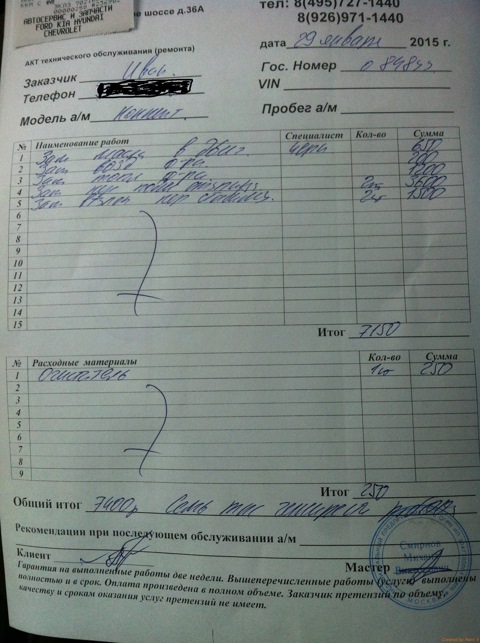 АВТОСЕРВИС И ЗАПЧАСТИ
FORD KIA HYUNDAI
CHEVROLET
шоссе д.36А
тел: 8(495)727-1440
8(926)971-1440
дата 29 января 2015 г.
АКТ технического обслуживания (ремонта)
Заказчик Иван
Гос. Номер
Телефон
VIN
Модель а/м Коннект
Пробег а/м
№ Наименование работ Специалист Кол-во Сумма
1 Зам масла в двиг. 650
2 Зам возд 200
3 Зам 1200
4 Зам 2шт
5 Зам втулок пер стабил. 2шт 1500
6
7
8
9
10
11
12
13
14
15
Итог 7150
№ Расходные материалы Кол-во Сумма
1 Очиститель 1шт 250
2
3
4
5
6
7
8
9
Итог 250
Общий итог 7400р Семь тыс четыреста рублей
Рекомендации при последующем обслуживании а/м
Клиент
Мастер
Смирнов
Гарантия на выполненные работы две недели. Вышеперечисленные работы (услуги) выполнены
полностью и в срок. Оплата произведена в полном объеме. Заказчик претензий по объему,
качеству и срокам оказания услуг претензий не имеет.